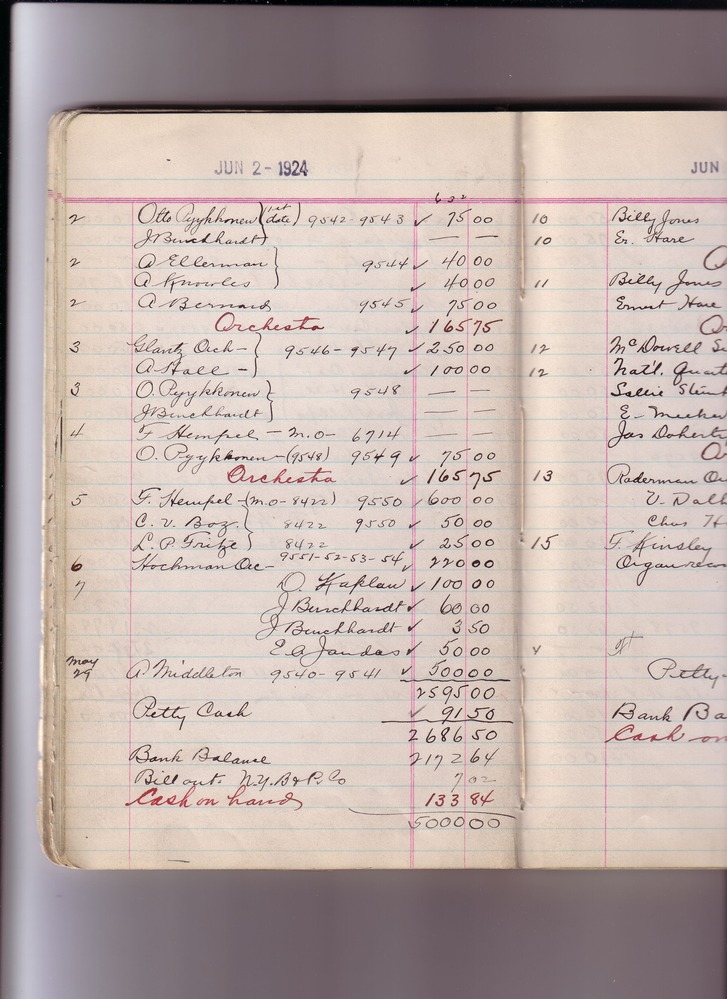 JUN 2 - 1924
2 Otto Pyykkonen (1st date) 9542-9543 ✓ 75 00
J Burckhardt — —
2 A Ellerman 9544 ✓ 40 00
A Knowles ✓ 40 00
2 A Bernard 9545 ✓ 75 00
Orchestra ✓ 165 75
3 Glantz Orch - 9546-9547 ✓ 250 00
A Hall - ✓ 100 00
3 O. Pyykkonen 9548 — —
J Burckhardt — —
4 F Hempel - M.O- 6714 — —
O. Pyykkonen - (9548) 9549 ✓ 75 00
Orchestra ✓ 165 75
5 F. Hempel - (M.O- 8422) 9550 ✓ 600 00
C. V. Boz. 8422 9550 ✓ 50 00
L. P. Fritze 8422 ✓ 25 00
6 Hochman Orc - 9551-52-53-54 ✓ 220 00
7 D. Kaplan ✓ 100 00
J Burckhardt ✓ 60 00
J Burckhardt ✓ 3 50
E A Jandas ✓ 50 00
May 29 A Middleton 9540-9541 ✓ 500 00
2595 00
Petty Cash ✓ 91 50
2686 50
Bank Balance 2172 64
Bill out N.Y.B & P. Co 7 02
Cash on hand 133 84
5000 00
JUN
10 Billy Jones
10 Er. Hare
11 Billy Jones
Ernest Hare
Or
12 McDowell
12 Nat'l. Quart
Sallie
E - Meeker
Jas Dohert
13 Raderman Or
V. Dalh
Chas H
15 F. Kinsley
Organ
Petty-
Bank Ba
Cash on